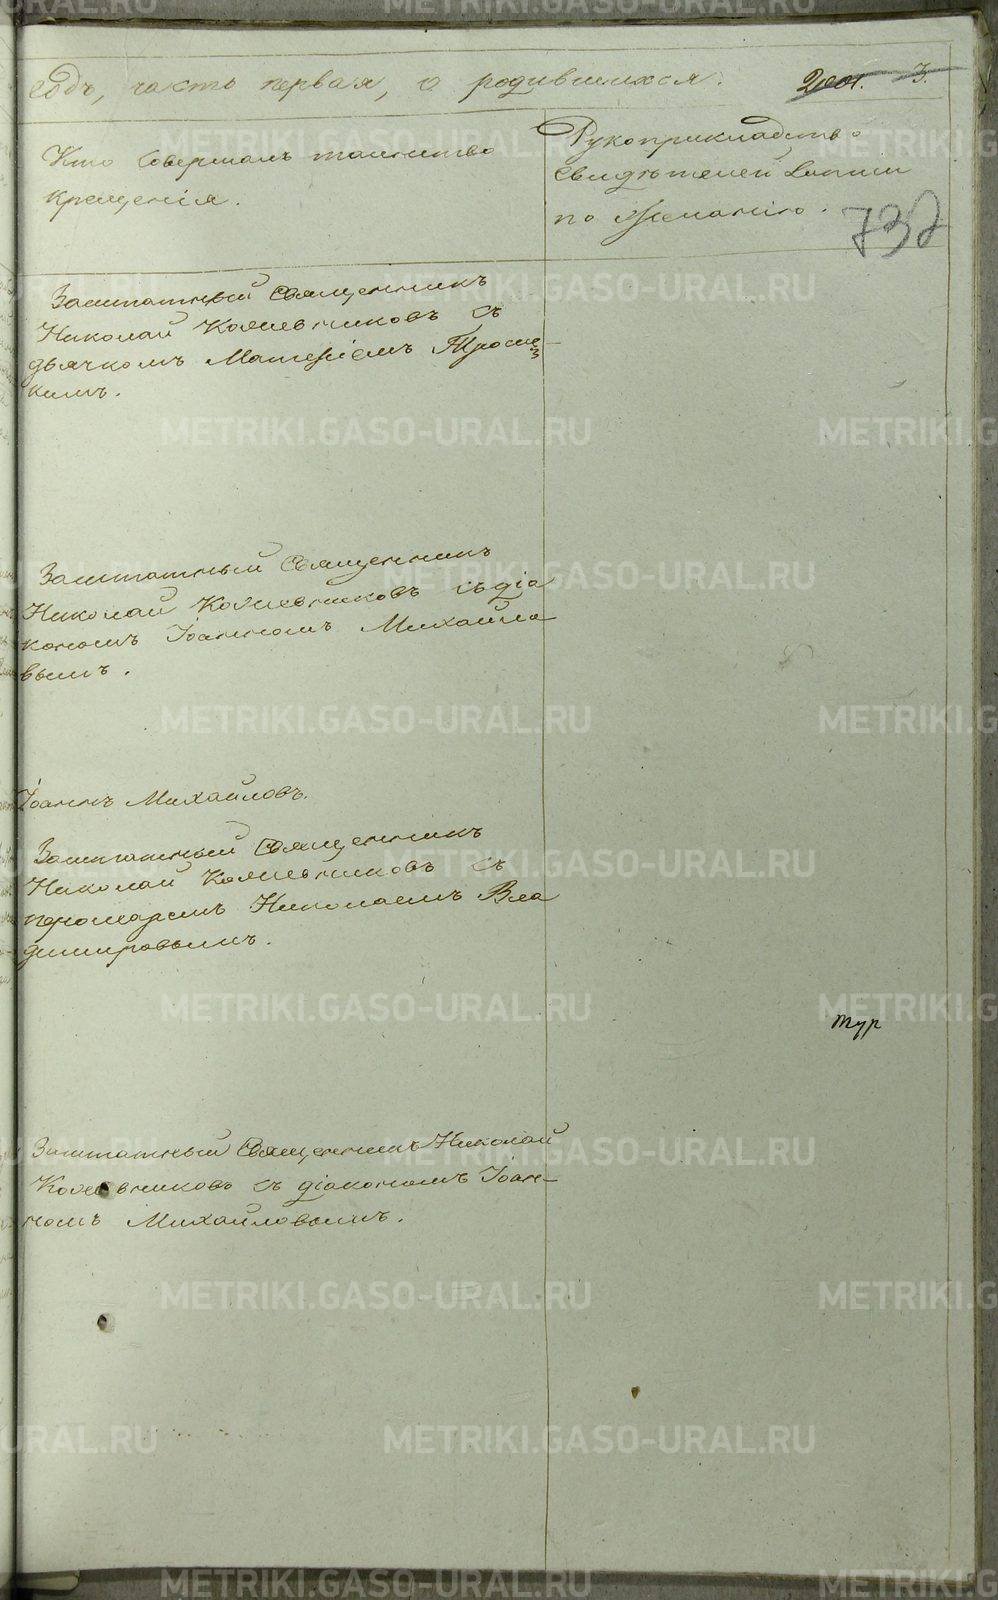 годъ, часть первая, о родившихся. 3.
Кто совершалъ таинство
крещенія.
Рукоприкладство
свидѣтелей записи
по желанію.
737
Заштатный Священникъ
Николай Кожевниковъ съ
дьячкомъ Матѳіемъ Троиц-
кимъ.
Заштатный Священникъ
Николай Кожевниковъ съ діа
кономъ Іоанномъ Михайло
вымъ.
Іоаннъ Михайловъ.
Заштатный Священникъ
Николай Кожевниковъ съ
пономаремъ Николаемъ Вла
диміровымъ.
тур
Заштатный Священникъ Николай
Кожевниковъ съ діакономъ Іоан-
номъ Михайловымъ.
METRIKI.GASO-URAL.RU